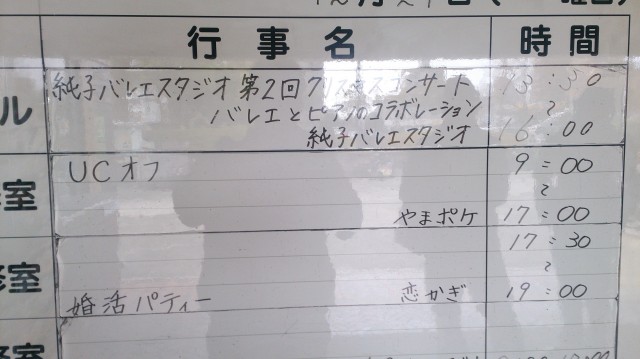 行事名 時間
ル 純子バレエスタジオ 第2回クリスマスコンサート 13:30
バレエとピアノのコラボレーション 〜
純子バレエスタジオ 16:00
室 UCオフ 9:00
〜
やまポケ 17:00
17:30
室 〜
婚活パティー 恋かぎ 19:00